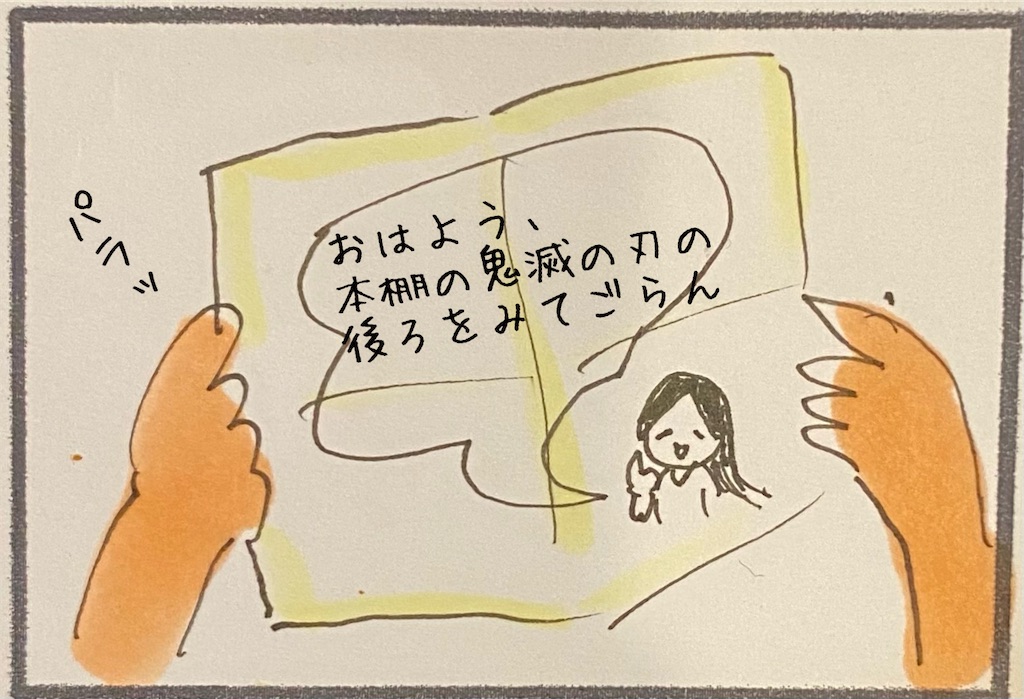 おはよう、
本棚の鬼滅の刃の
後ろをみてごらん
パラッ